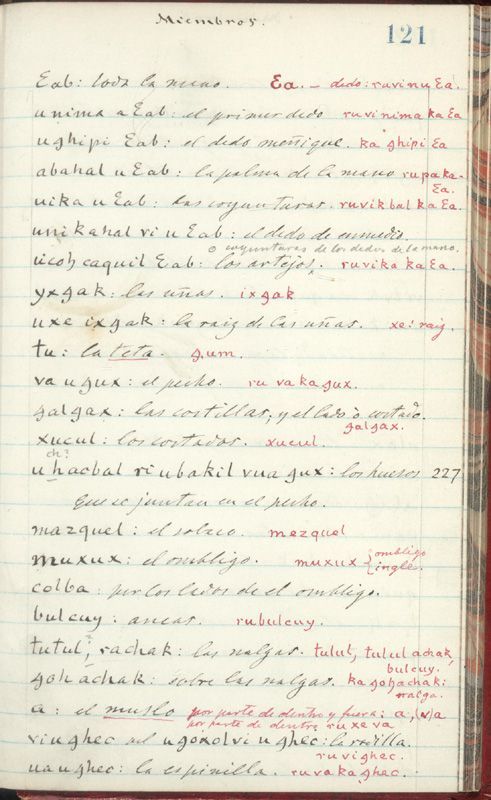 Miembros.
121
Eab: toda la mano. Ea. – dedo: ruvinu Ea.
unima a Eab: el primer dedo ruvinima ka Ea
ughipi Eab: el dedo meñique. ka ghipi Ea
abahal u Eab: la palma de la mano rupaka-
Ea.
uika u Eab: las coyunturas. ruvikbal ka Ea.
unikahal ri u Eab: el dedo de enmedio
o coyunturas de los dedos de la mano.
uicoh caquil Eab: los artejos. ruvika ka Ea.
yxgak: las uñas. ixgak
uxe ixgak: la raiz de las uñas. xe: raiz.
tu: la teta. gum.
va u gux: el pecho. ru vaka gux.
galgax: las costillas, y el lado ò costado.
galgax.
xucul: los costados. xucul.
ch?
uhacbal ri ubakil vua gux: los huesos 227
que se juntan en el pecho.
mazquel: el solaco. mezquel
muxux: el ombligo. muxux { ombligo
ingle.
colba: por los lados de el ombligo.
bulcuy: ancas. rubulcuy.
tutul, rachak: las nalgas. tulut, tulul achak,
bulcuy.
goh achak: sobre las nalgas. ka goh achak:
nalga.
a: el muslo por parte de dentro y fuera: a, (v)a
por parte de dentro ru xe va
viughec vel ugoxol vi u ghec: la rodilla.
ruvighec.
ua u ghec: la espinilla. ruvaka ghec.